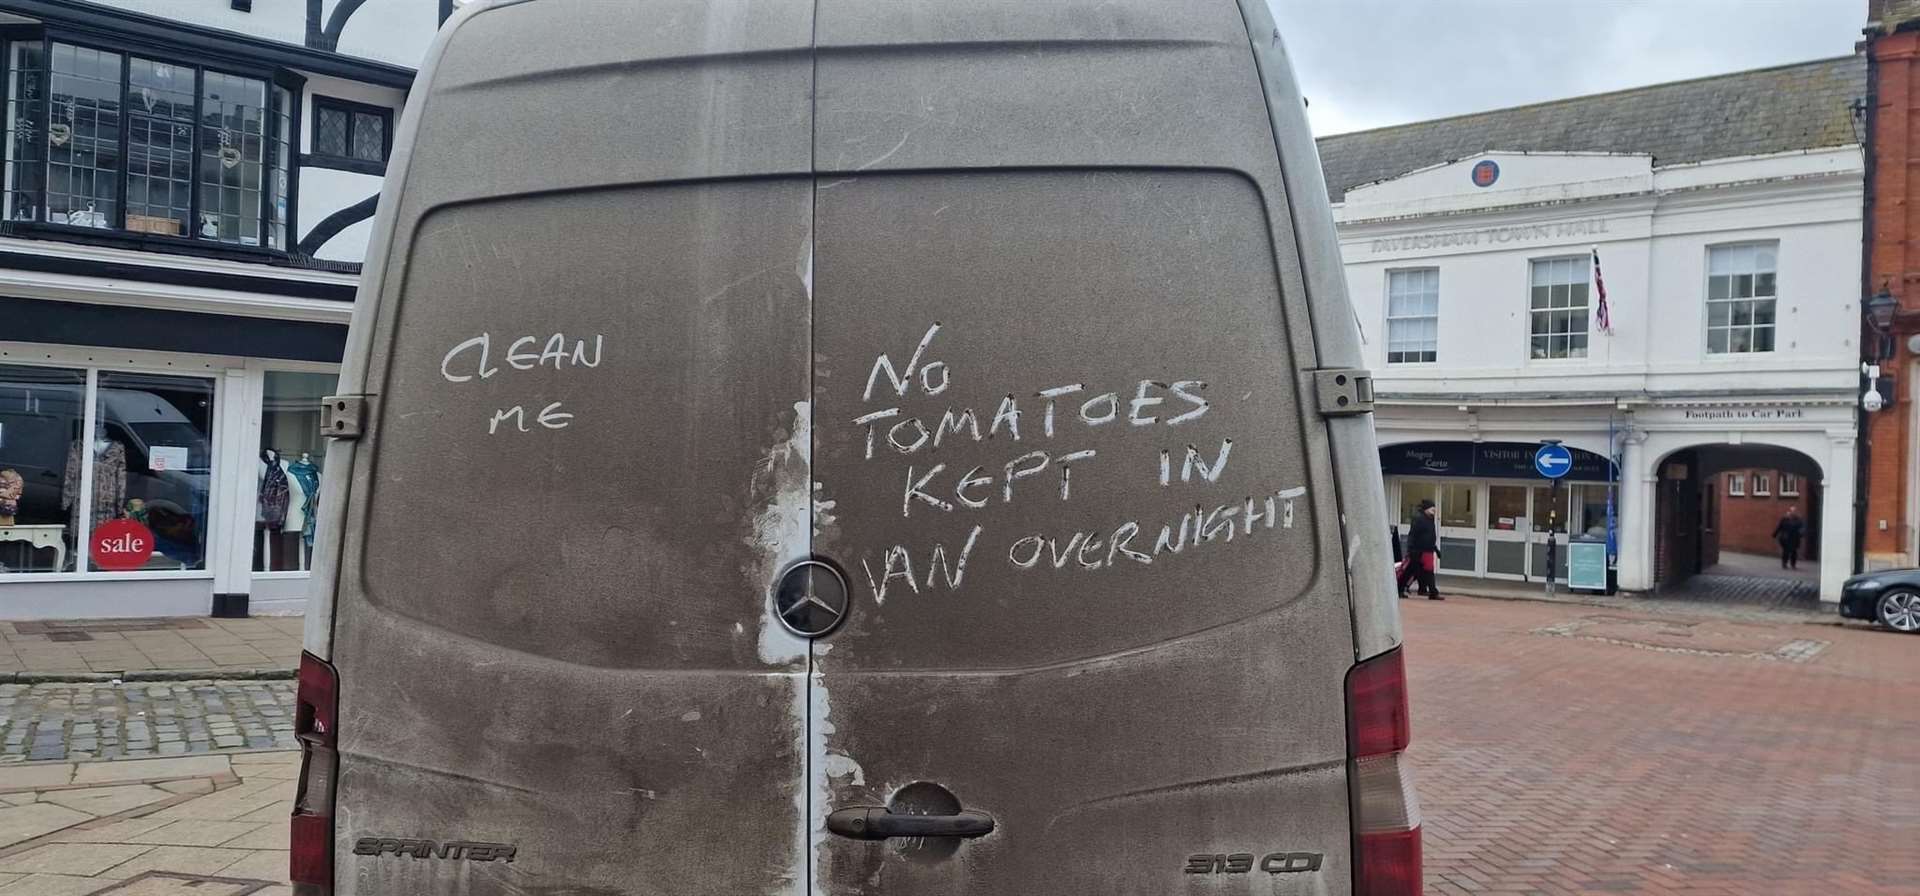 CLEAN
ME
NO
TOMATOES
KEPT IN
VAN OVERNIGHT
SPRINTER
313 CDI
sale
FAVERSHAM TOWN HALL
Footpath to Car Park
Magna
Carta